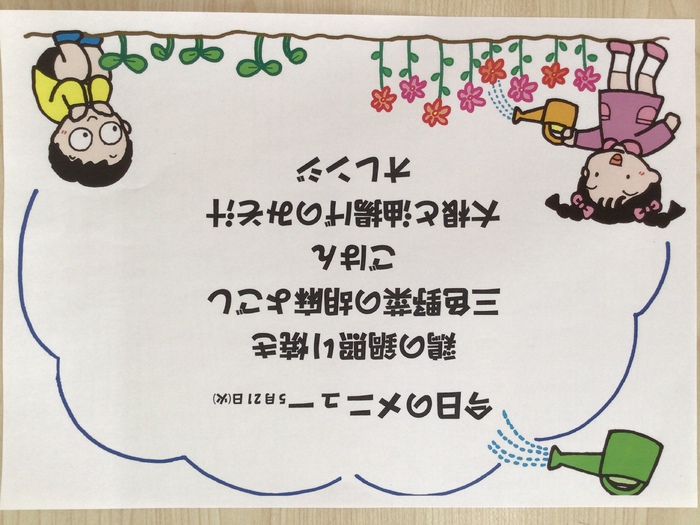 今日のメニュー5月21日(火)
鶏の鍋照り焼き
三色野菜の胡麻よごし
ごはん
大根と油揚げのみそ汁
オレンジ